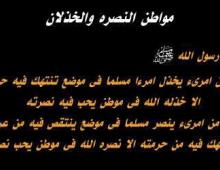 مواطن النصره والخذلان
رسول الله ﷺ
امرىء يخذل امرءا مسلما فى موضع تنتهك فيه
الا خذله الله فى موطن يحب فيه نصرته
من امرىء ينصر مسلما فى موضع ينتقص فيه من
فيه من حرمته الا نصره الله فى موطن يحب